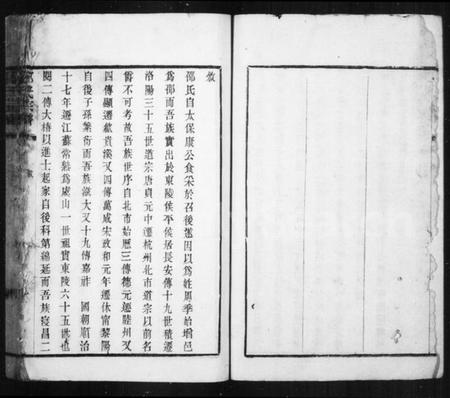 敘
邵氏自太保康公食采於召後遂因以為姓周季始增邑
為邵而吾族實出於東陵侯平侯居長安傳十九世積遷
洛陽三十五世道宗唐貞元中遷杭州北市道宗以前名
諱不可考故吾族世序自北市始歷三傳德元遷睦州又
四傳顯遷歙貴溪又四傳萬成宋政和元年遷休甯黎陽
自後子孫蕃衍而吾族滋大又十九傳嘉祚 國朝順治
十七年遷江蘇常熟為虞山一世祖實東陵六十五世也
閱二傳大椿以進士起家自後科第綿延而吾族寖昌二